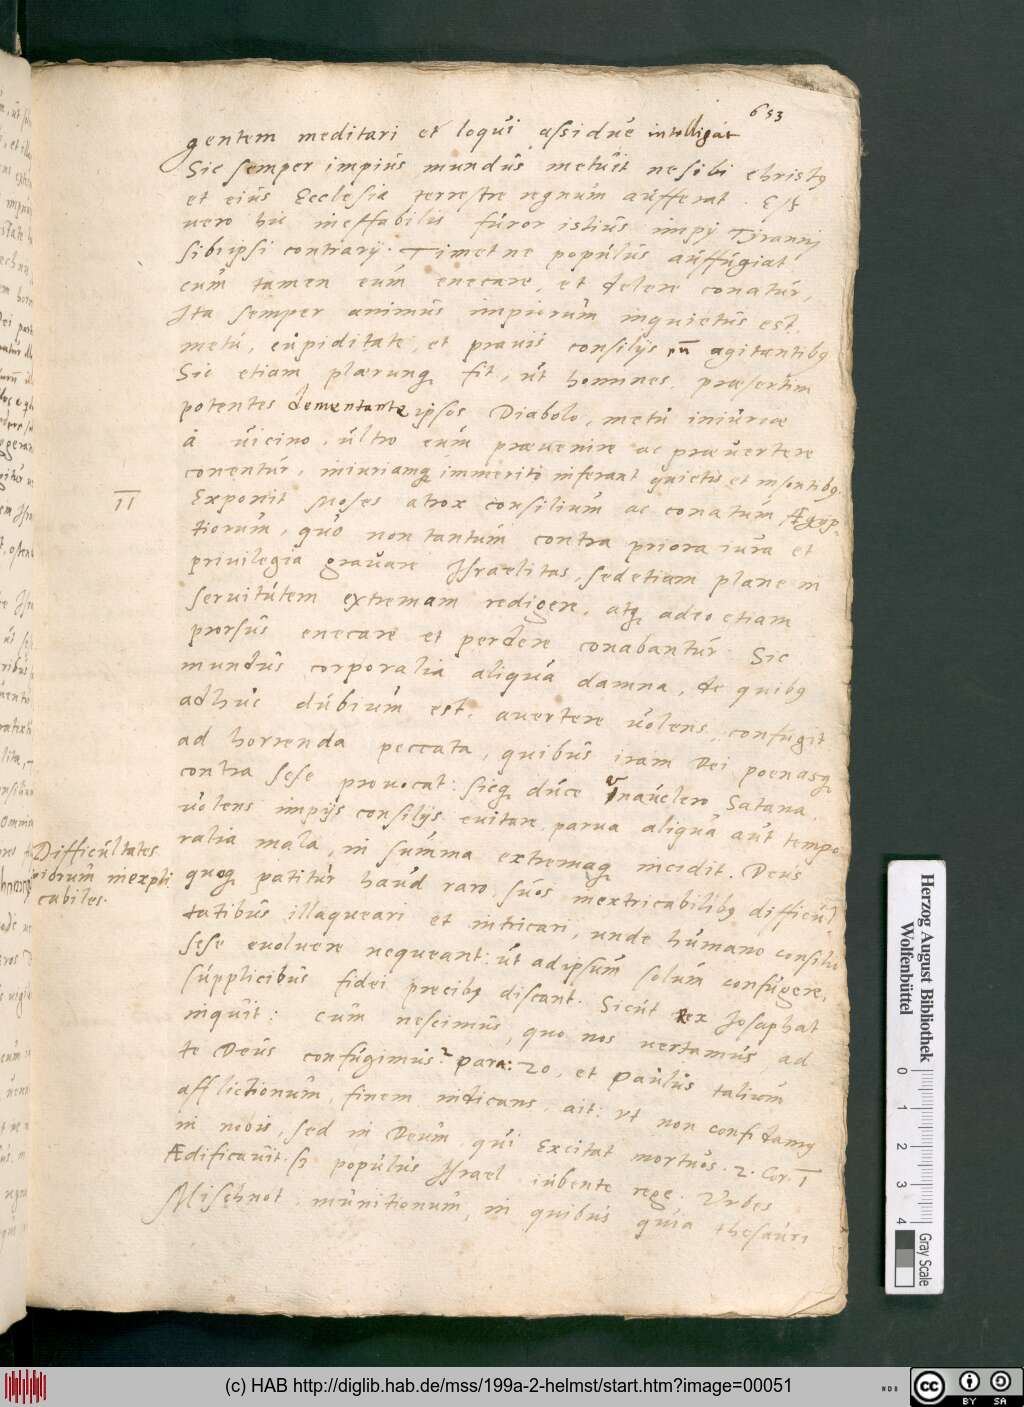 653
gentem meditari et loqui assidue intelligat
Sic semper impius mundus metuit ne sibi Christus
et eius Ecclesia terrestre regnum aufferat. Est
vero hic ineffabilis furor istius impij Tyranni
sibi ipsi contrarij. Timet ne populus auffugiat
cum tamen eum enecare, et delere conatur,
Ita semper animus impiorum inquietus est,
metu, cupiditate, et pravis consilijs agitantibus
Sic etiam plærunque fit, ut homines, præsertim
potentes dementante ipsos Diabolo, metu iniuriæ
à vicino, ultro eum prævenire ac prævertere
conentur, iniuriamque immerito inferant quietis et insontibus.
II
Exponit Moses atrox consilium ac conatum Ægyp-
tiorum, quo non tantum contra priora iura et
privilegia gravare Israelitas, sed etiam plane in
servitutem extremam redigere, atque adeo etiam
prorsus enecare et perdere conabantur. Sic
mundus corporalia aliqua damna, de quibus
adhuc dubium est, avertere volens, confugit
ad horrenda peccata, quibus iram Dei poenasque
contra sese provocat: sicque duce nauclero Satana,
volens impijs consilijs evitare parva aliqua aut tempo
ralia mala, in summa extremaque incidit. Deus
Difficultates
piorum inexpli
cabiles.
quoque patitur haud raro suos inextricabilibus difficul
tatibus illaqueari et intricari, unde humano consilio
sese evolvere nequeant: ut ad ipsum solum confugere,
supplicibus fidei precibus discant. Sicut rex Josaphat
inquit: cum nescimus, quo nos vertamus ad
te Deus confugimus. 2 para: 20, et Paulus talium
afflictionum, finem indicans, ait: ut non confidamus
in nobis, sed in Deum, qui Excitat mortuos. 2. Cor. I
Ædificavit populus Israel iubente rege. Urbes
Mischnot munitionum, in quibus quia thesauri
Herzog August Bibliothek
Wolfenbüttel
0 1 2 3 4
Gray Scale
(c) HAB http://diglib.hab.de/mss/199a-2-helmst/start.htm?image=00051
BY SA